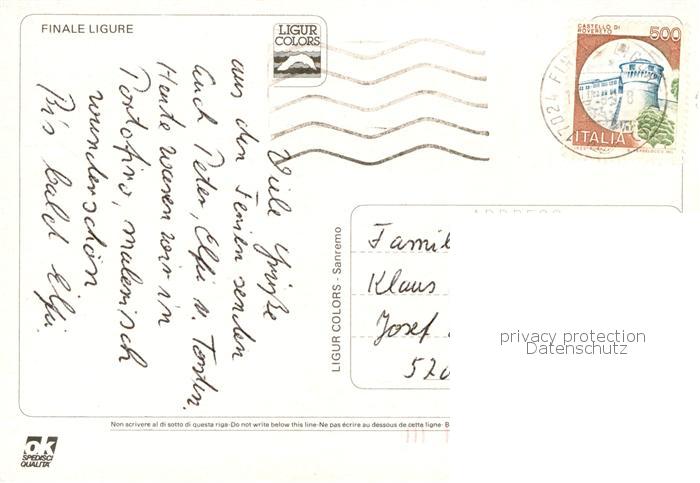 FINALE LIGURE
LIGUR
COLORS
CASTELLO DI
ROVERETO
500
ITALIA
17024 FIN
Viele Grüße
aus den Ferien senden
Euch Peter, Elfi u. Torsten.
Heute waren wir in
Portofino, malerisch
wunderschön
Bis bald Elfi.
LIGUR COLORS - Sanremo
ADDRESS
Famil
Klaus
Josef
520
privacy protection
Datenschutz
Non scrivere al di sotto di questa riga-Do not write below this line-Ne pas écrire au dessous de cette ligne- B
ok
SPEDISCI
QUALITÀ